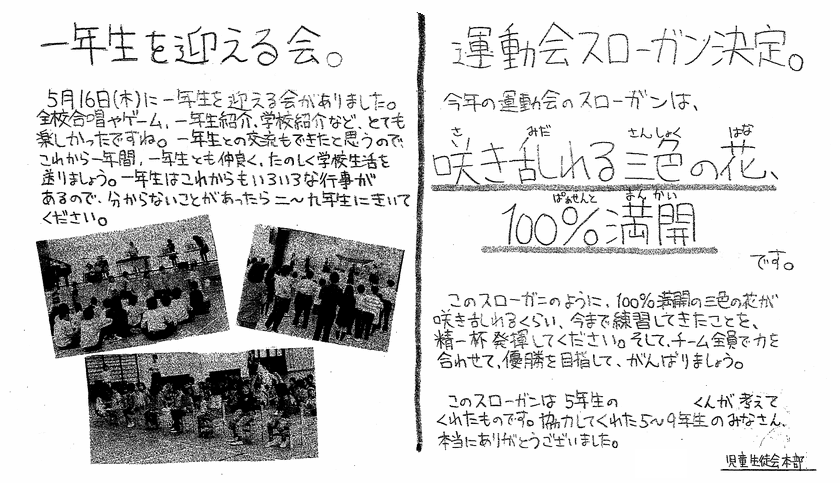 一年生を迎える会。
5月16日(木)に一年生を迎える会がありました。
全校合唱やゲーム、一年生紹介、学校紹介など、とても
楽しかったですね。一年生との交流もできたと思うので、
これから一年間、一年生とも仲良く、たのしく学校生活を
送りましょう。一年生はこれからもいろいろな行事が
あるので、分からないことがあったら二〜九年生にきいて
ください。
運動会スローガン決定。
今年の運動会のスローガンは、
さ みだ さんしょく はな
咲き乱れる三色の花、
ぱあせんと まんかい
100%満開
です。
このスローガンのように、100%満開の三色の花が
咲き乱れるくらい、今まで練習してきたことを、
精一杯発揮してください。そして、チーム全員で力を
合わせて、優勝を目指して、がんばりましょう。
このスローガンは5年生の くんが考えて
くれたものです。協力してくれた5〜9年生のみなさん、
本当にありがとうございました。
児童生徒会本部